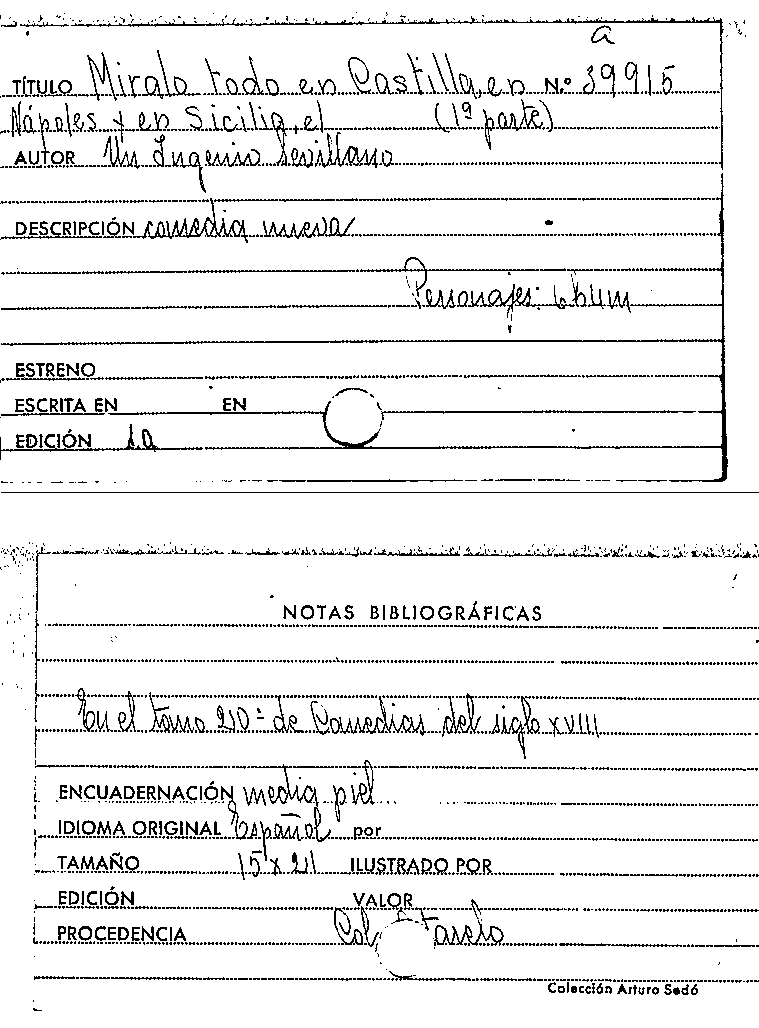 a
TÍTULO Miralo todo en Castilla, en N.º 39915
Nápoles y en Sicilia, el (1ª parte)
AUTOR Un Ingenio Sevillano
DESCRIPCIÓN comedia nueva
Personajes: 6h4m
ESTRENO
ESCRITA EN EN
EDICIÓN
NOTAS BIBLIOGRÁFICAS
En el tomo 210º de Comedias del siglo XVIII
ENCUADERNACIÓN media piel
IDIOMA ORIGINAL Español por
TAMAÑO 15 x 21 ILUSTRADO POR
EDICIÓN VALOR
PROCEDENCIA Col
Colección Arturo Sedó